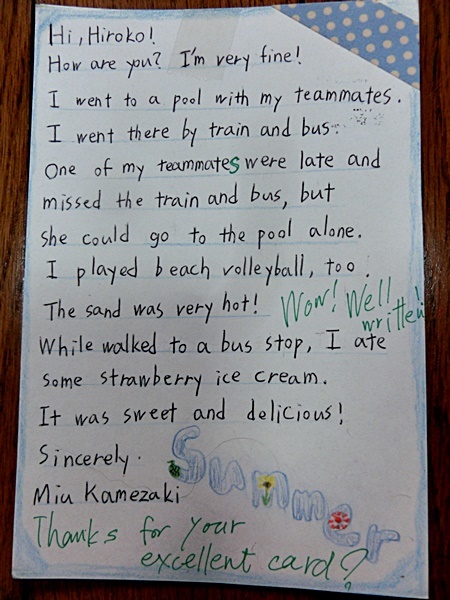 Hi, Hiroko!
How are you? I'm very fine!
I went to a pool with my teammates.
I went there by train and bus.
One of my teammates were late and
missed the train and bus, but
she could go to the pool alone.
I played beach volleyball, too.
The sand was very hot!
Wow! Well
written!
While walked to a bus stop, I ate
some strawberry ice cream.
It was sweet and delicious!
Sincerely.
Miu Kamezaki
Summer
Thanks for your
excellent card?